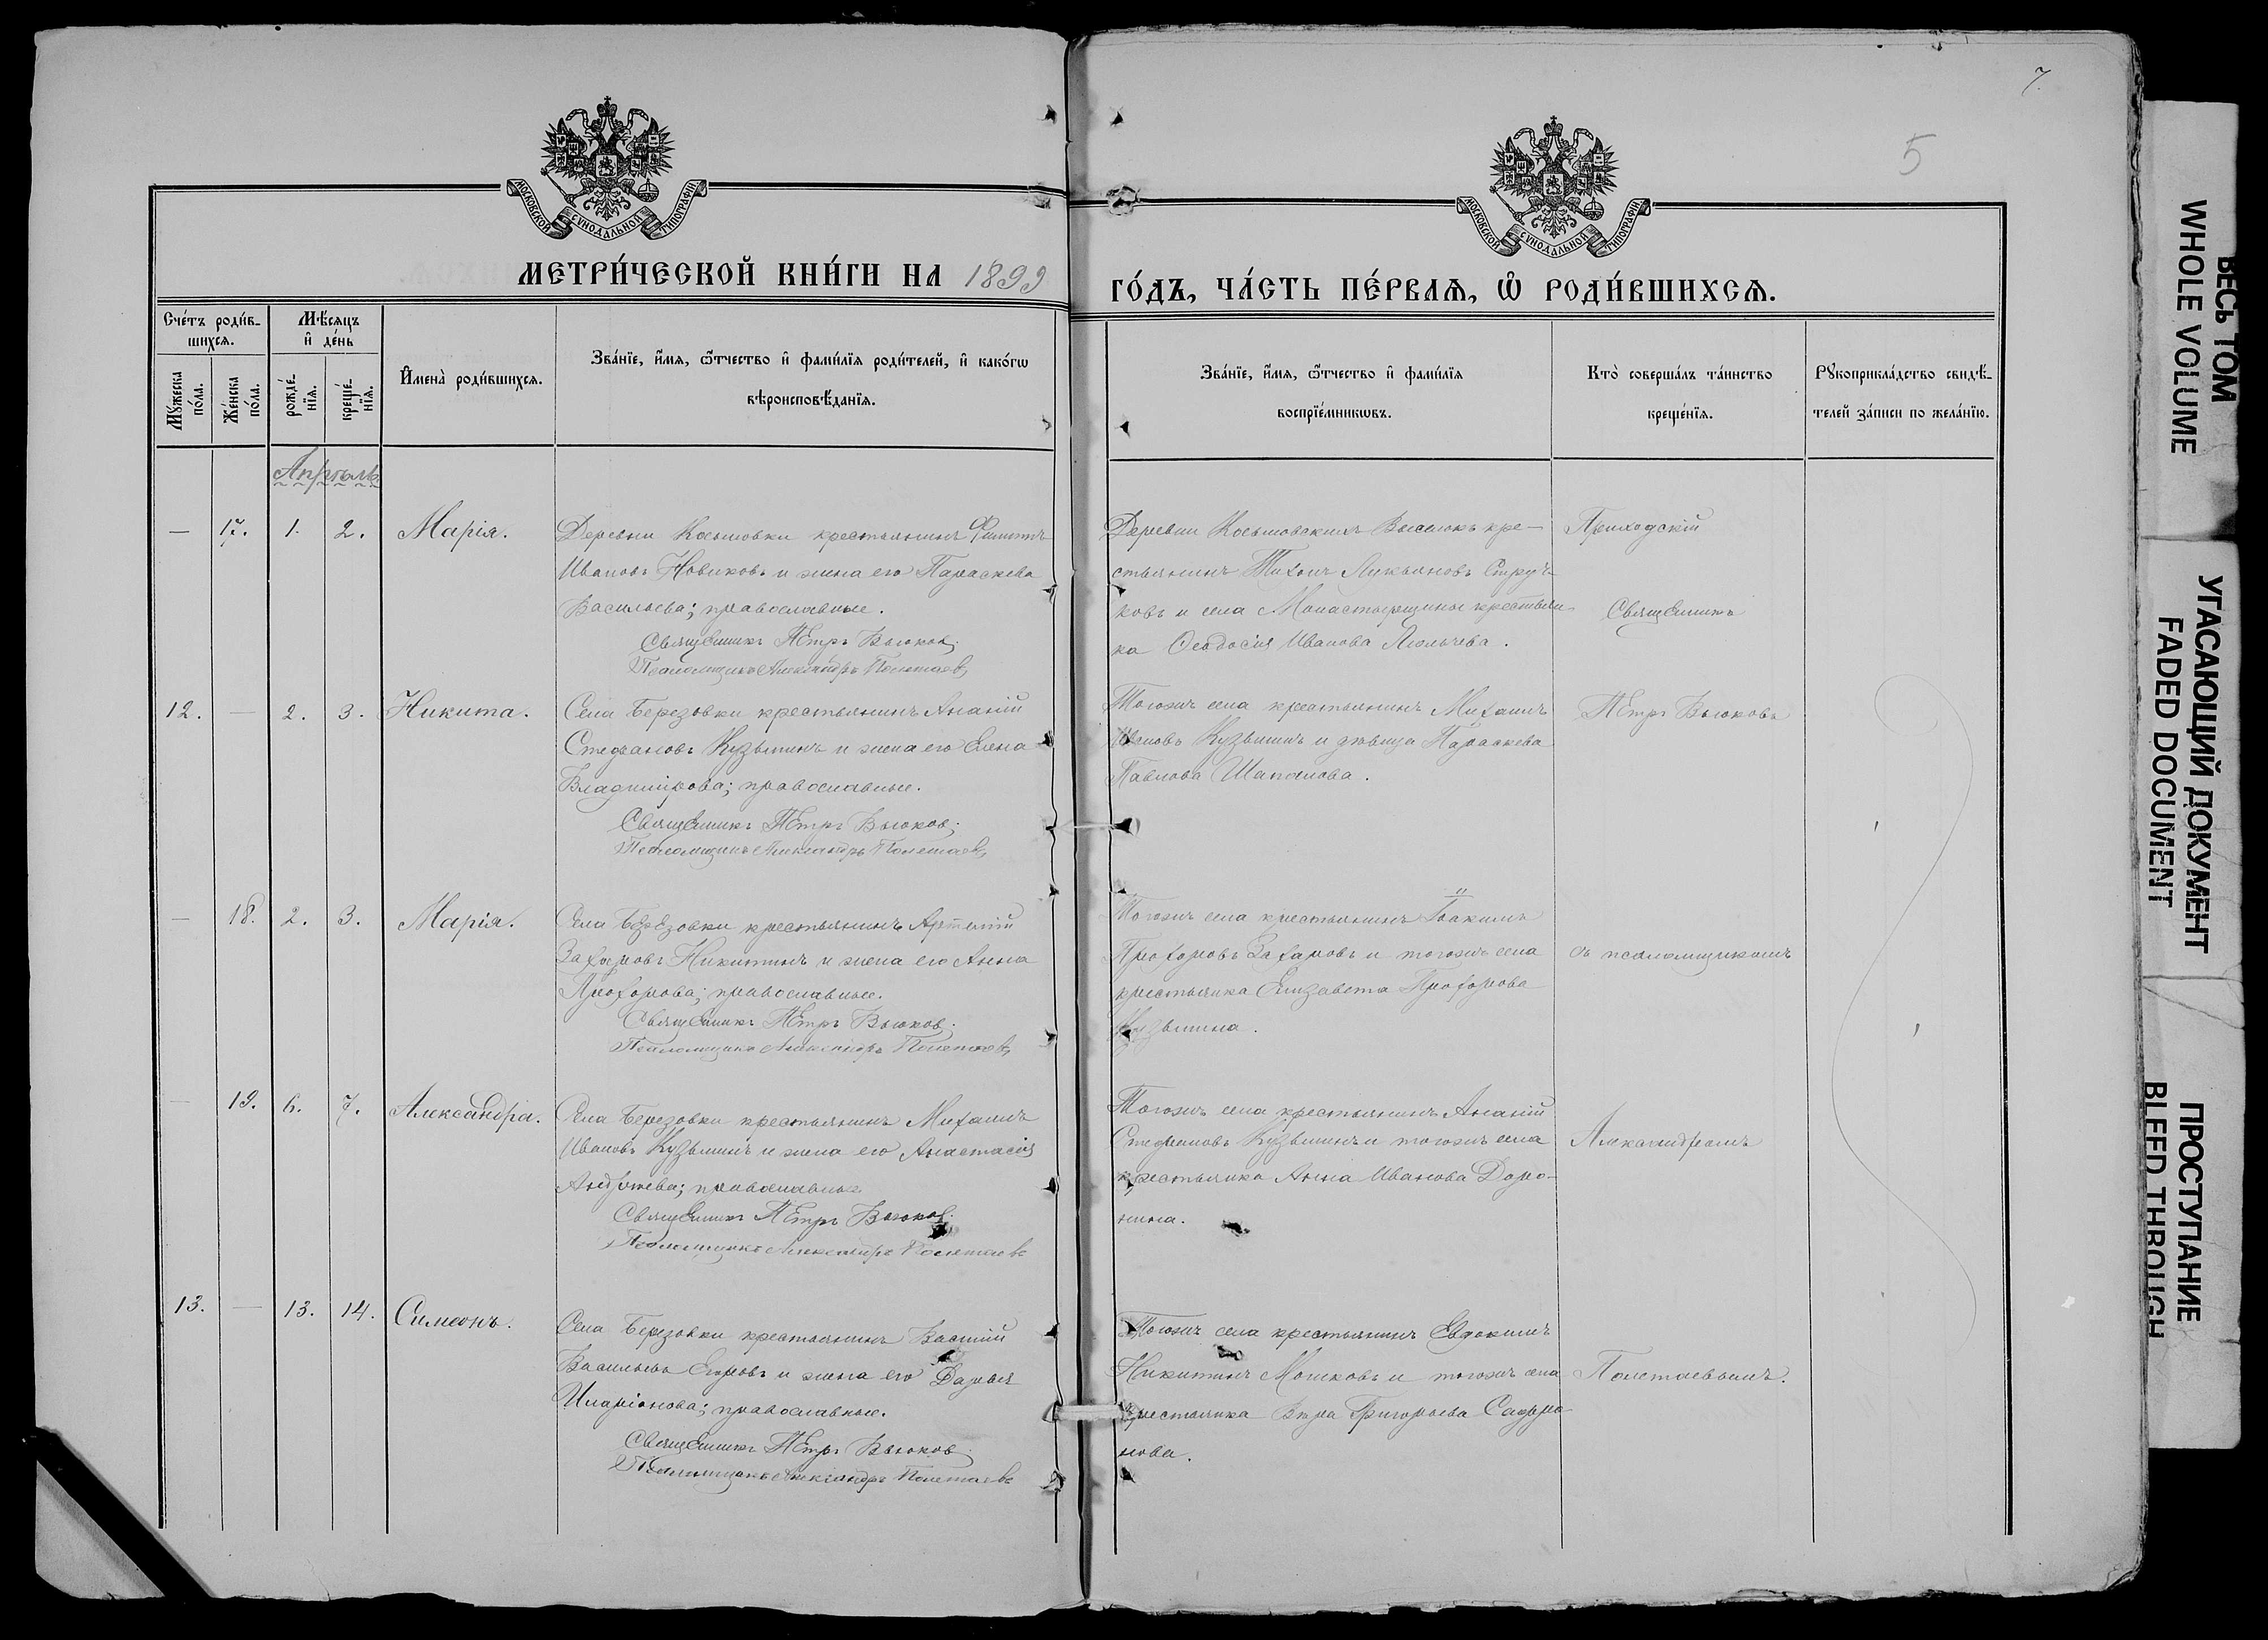 7.
5
МОСКОВСКОЙ СѴНОДАЛЬНОЙ ТИПОГРАФІИ
МОСКОВСКОЙ СѴНОДАЛЬНОЙ ТИПОГРАФІИ
МЕТРИ́ЧЕСКОЙ КНИ́ГИ НА 1899
ГО́ДЪ, ЧА́СТЬ ПЕ́РВАѦ, Ѡ҆ РОДИ́ВШИХСѦ.
Сче́тъ роди́в-
шихсѧ.
Мѣ́сяцъ
и҆ де́нь
Мꙋ́жеска
по́ла.
Же́нска
по́ла.
рожде́-
нїѧ.
креще́-
нїѧ.
И҆мена̀ роди́вшихсѧ.
Зва́нїе, и҆́мѧ, ѻ҆́тчество и҆ фами́лїѧ роди́телей, и҆ како́гѡ
вѣроисповѣ́данїѧ.
Зва́нїе, и҆́мѧ, ѻ҆́тчество и҆ фами́лїѧ
воспрїе́мникѡвъ.
Кто̀ соверша́лъ та́инство
креще́нїѧ.
Рꙋкоприкла́дство свидѣ́-
телей за́писи по жела́нїю.
Апрѣль
— 17. 1. 2. Марія.
Деревни Косьмовки крестьянинъ Филиппъ
Ивановъ Новиковъ и жена его Параскева
Васильева; православные.
Священникъ Петръ Вьюковъ.
Псаломщикъ Александръ Полетаевъ
Деревни Косьмовскихъ Выселокъ кре-
стьянинъ Тихонъ Лукьяновъ
ковъ и села Монастырщины крестьян-
ка Ѳеодосія Иванова
Приходскій
Священникъ
12. — 2. 3. Никита.
Села Березовки крестьянинъ Ананій
Стефановъ Кузьминъ и жена его Елена
Владимірова; православные.
Священникъ Петръ Вьюковъ.
Псаломщикъ Александръ Полетаевъ
Тогожъ села крестьянинъ Михаилъ
Ивановъ Кузьминъ и дѣвица Параскева
Павлова Шапалова.
Петръ Вьюковъ
— 18. 2. 3. Марія.
Села Березовки крестьянинъ Артемій
Захаровъ Никитинъ и жена его Анна
Прохорова; православные.
Священникъ Петръ Вьюковъ.
Псаломщикъ Александръ Полетаевъ
Тогожъ села крестьянинъ Іоакимъ
Прохоровъ Захаровъ и тогожъ села
крестьянка Елизавета Прохорова
Кузьмина.
съ псаломщикомъ
— 19. 6. 7. Александра.
Села Березовки крестьянинъ Михаилъ
Ивановъ Кузьминъ и жена его Анастасія
Андреева; православные
Священникъ Петръ Вьюковъ.
Псаломщикъ Александръ Полетаевъ
Тогожъ села крестьянинъ Ананій
Стефановъ Кузьминъ и тогожъ села
крестьянка Анна Иванова Доро-
нина.
Александромъ
13. — 13. 14. Симеонъ.
Села Березовки крестьянинъ Василій
Васильевъ Егоровъ и жена его Дарья
Иларіонова; православные.
Священникъ Петръ Вьюковъ.
Псаломщикъ Александръ Полетаевъ
Тогожъ села крестьянинъ Евдокимъ
Никитинъ Мошковъ и тогожъ села
крестьянка Вѣра Григорьева Сафро-
нова.
Полетаевымъ.
ВЕСЬ ТОМ
WHOLE VOLUME
УГАСАЮЩИЙ ДОКУМЕНТ
FADED DOCUMENT
ПРОСТУПАНИЕ
BLEED THROUGH